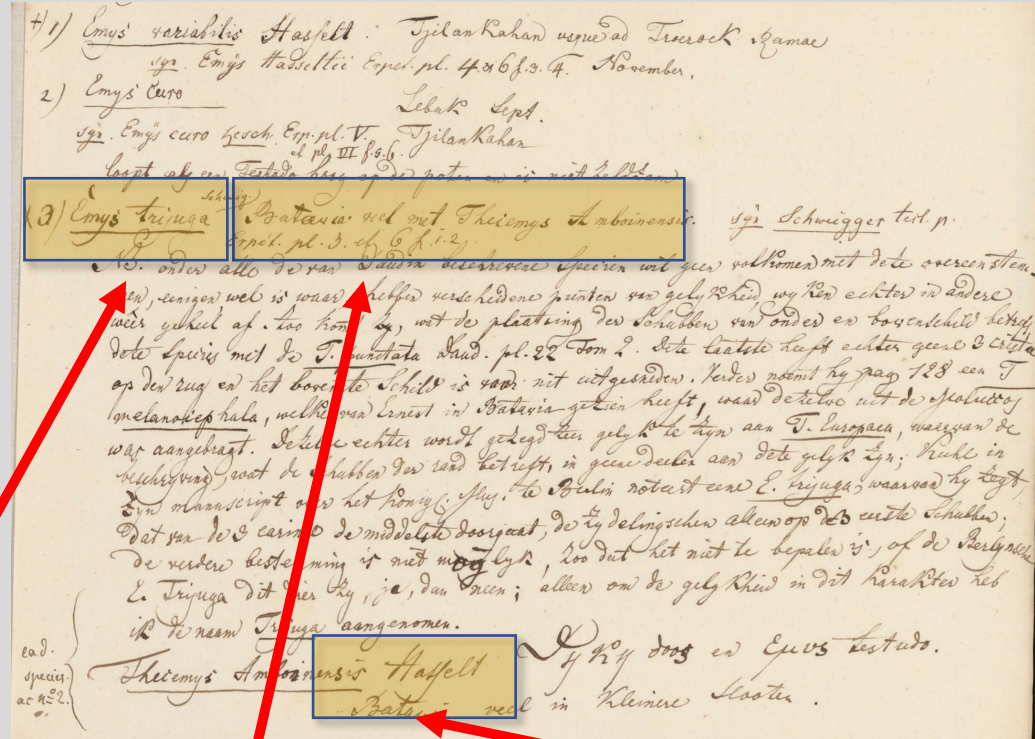 +) 1) Emys variabilis Hasselt : Tjilankahan usque ad Troerock Ramae
syn. Emys Hasseltii Erpet. pl. 4. & 6 f. 3. 4. November.
2) Emys Couro
Lebak Sept.
syn. Emys couro Gesch. Erp. pl. V. Tjilankahan
et pl. III f. 5. 6.
loopt als een Testudo hoog op de poten en is niet zeldzam
(3) Emys trijuga Schweig Batavia veel met Thecemys Amboinensis. syn Schweigger test. p.
Erpét. pl. 3. et 6 f. 1. 2.
NB. onder alle de van Daudin beschrevene Specien wil geen volkomen met deze overeenstem-
men, eenigen wel is waar hebben verscheidene punten van gelykheid, wyken echter in andere
weêr geheel af. Zoo komt by, wat de plaatsing der Schubben van onder en bovenschild betreft
deze Species met de T. punctata Daud. pl. 22 Tom 2. Deze laatste heeft echter geene 3 cristae
op den rug en het bovenste Schild is voor nit uitgesneden. Verder noemt hy pag 128 een T
melanocephala, welke van Ernest in Batavia gezien heeft, waar dezelve uit de Moluccos
was aangebragt. Dezelve echter wordt gezegd zeer gelyk te zyn aan T. Europaea, waarvan de
beschryving, wat de Schubben der rand betreft, in geene deelen aan deze gelyk zyn; Kuhl in
zyn manuscript over het König. Mus. te Berlin noteert eene E. trijuga, waarvan hy zegt,
dat van de 3 carinae de middelste doorgaat, de zydelingschen alleen op de 3 eerste Schubben;
de verdere bestemming is niet mogelyk, zoo dat het niet te bepalen is, of de Berlynsche
E. Trijuga dit dier zy, ja, dan neen; alleen om de gelykheid in dit karakter heb
ik de naam Trijuga aangenomen.
ead. species ac no 2.
Thecemys Amboinensis Hasselt doos en Emys testudo.
Batavia veel in kleinere slooten.